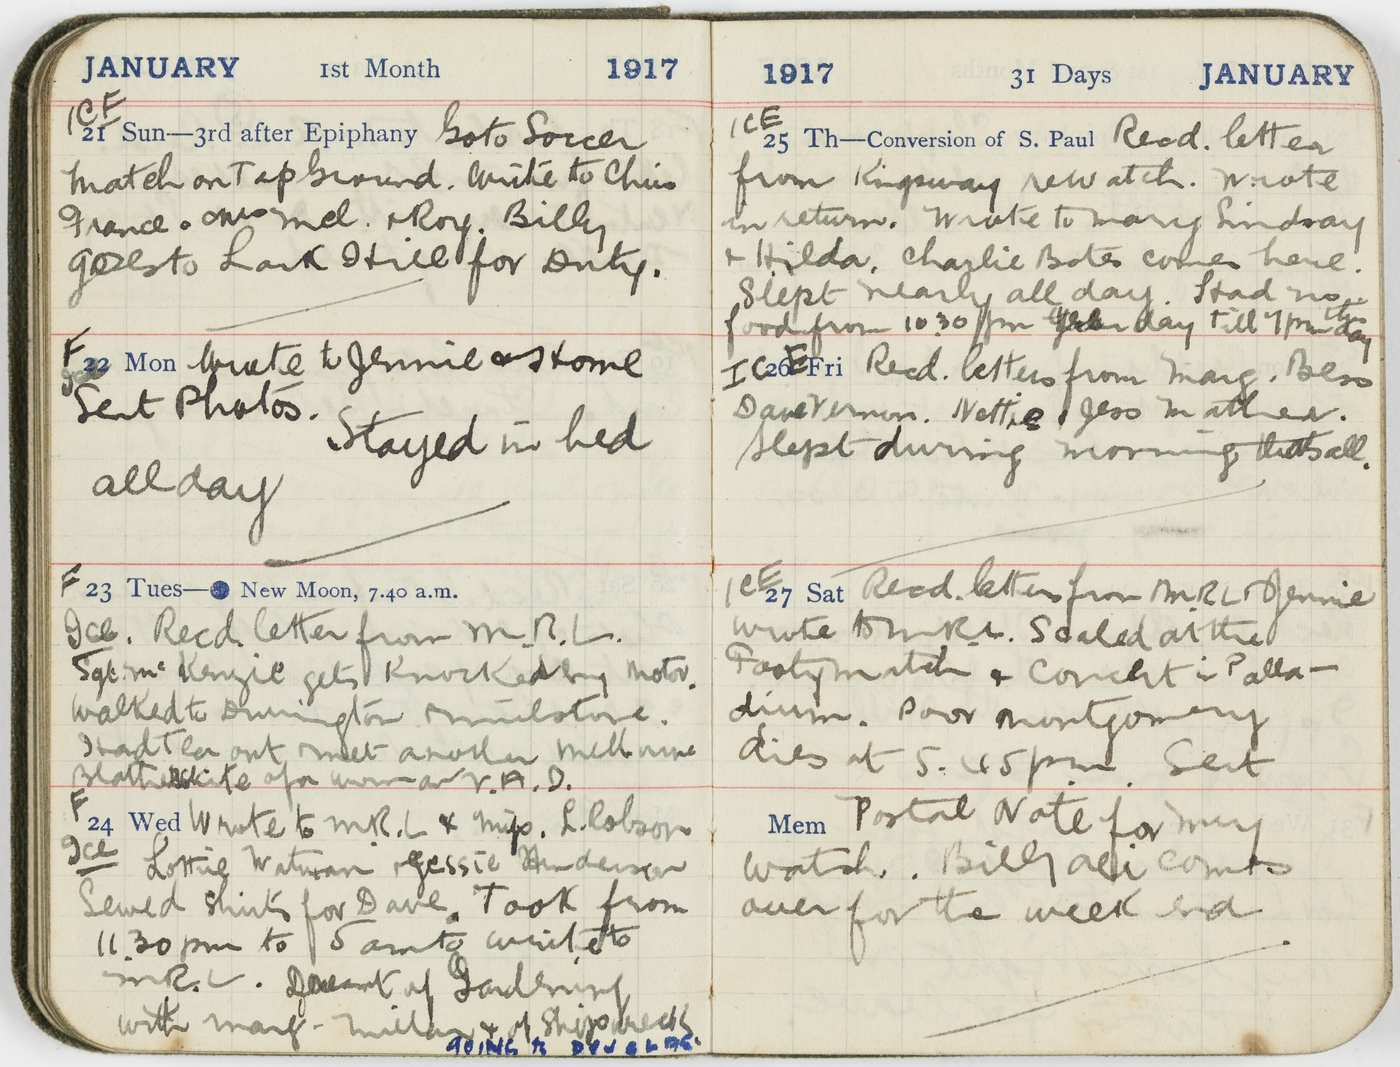 JANUARY 1st Month 1917
ICE
21 Sun—3rd after Epiphany Go to Soccer
match on Top Ground. Write to Chris
France. & Roy. Billy
goes to Lark Hill for Duty.
F
22 Mon Wrote to Jennie & Home
Sent Photos.
Stayed in bed
all day
F
23 Tues— New Moon, 7.40 a.m.
Ice. Recd. letter from M.R.L.
Sgt. Mc Kenzie gets Knocked by Motor.
Walked to Durrington milestone.
Had tea out met another Melbourne
Blatherskite of a woman V.A.D.
F
24 Wed Wrote to M.R.L & Miss. L. Robson
Ice
Lottie & Jessie Henderson
Sewed shirts for Dave. Took from
11.30 pm to 5 am to write to
M.R.L. Dreamt of Gardening
with Marg- & of Shipwreck
GOING TO
1917 31 Days JANUARY
ICE
25 Th—Conversion of S. Paul Recd. letter
from Kingsway re Watch. Wrote
in return. Wrote to Mary Lindsay
& Hilda. Charlie Bates comes here.
Slept nearly all day. Had no
food from 10.30 pm yesterday till 7 pm today
ICE
26 Fri Recd. letters from Marg. Bess
Dave Vernon. Nettie & Jess Mather.
Slept during morning thats all.
ICE
27 Sat Recd. letters from M.R.L & Jennie
wrote to M.R.L. Scaled at the
Footy match & Concert in Palla-
dium. Poor Montgomery
dies at 5.45 pm. Sent
Mem Postal Note for my
watch. Billy comes
over for the week end